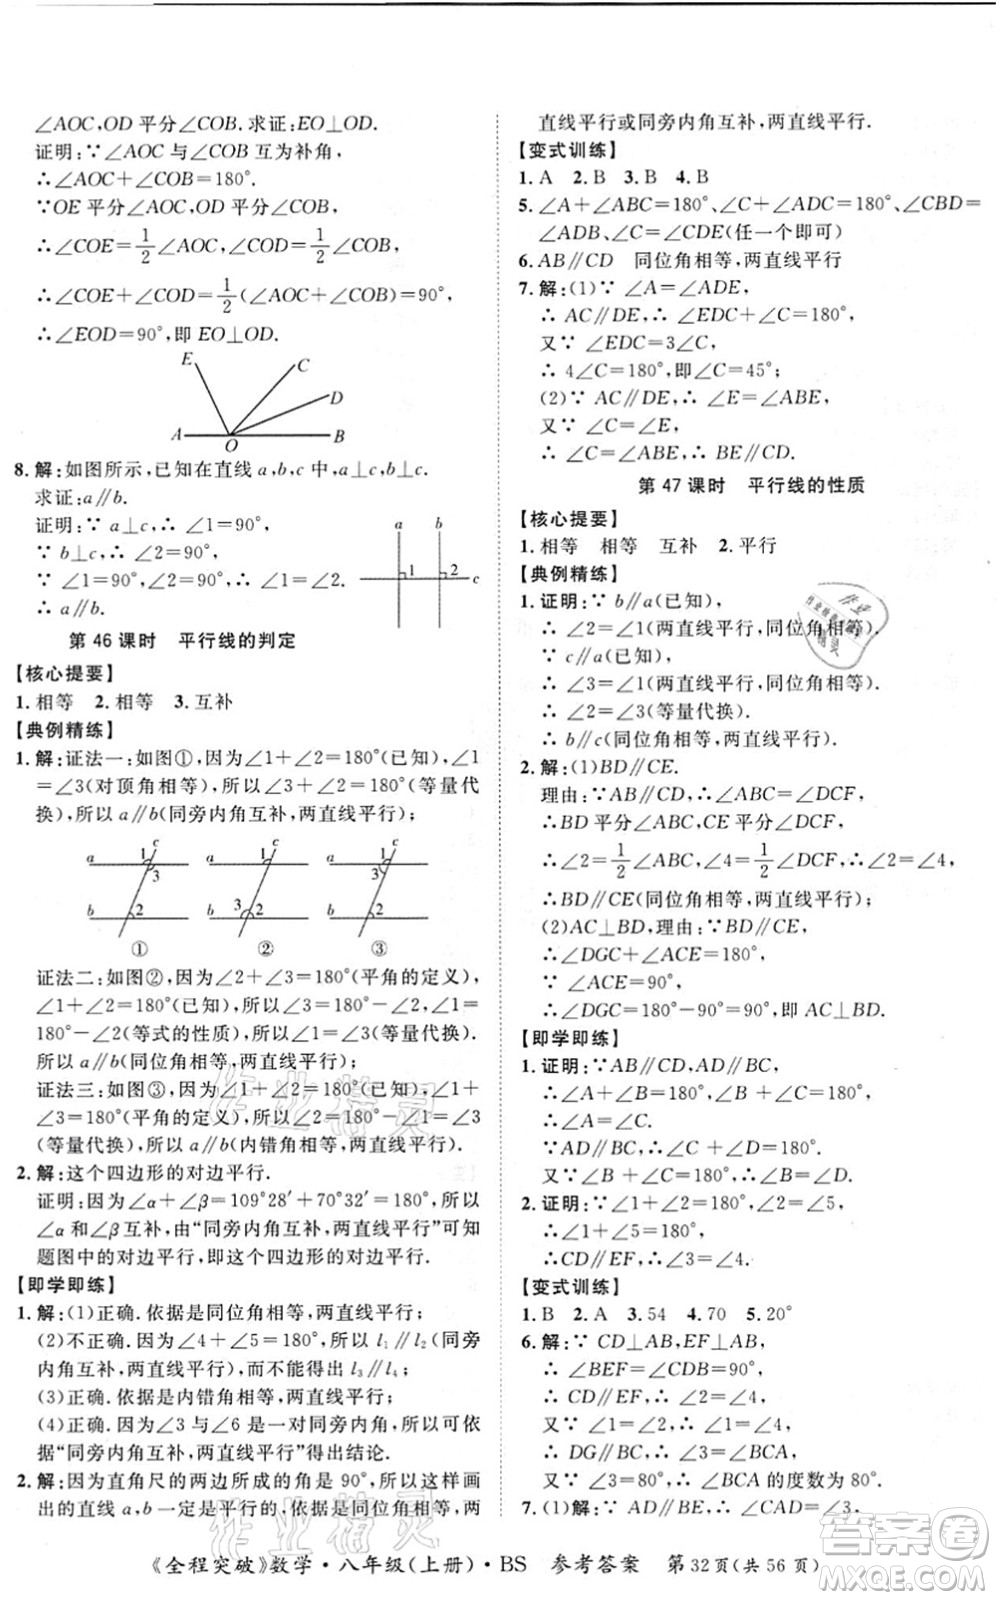 ∠AOC,OD 平分∠COB.求证:EO⊥OD.
证明:∵∠AOC 与∠COB 互为补角,
∴∠AOC+∠COB=180°.
∵OE 平分∠AOC,OD 平分∠COB,
∴∠COE=1/2∠AOC,∠COD=1/2∠COB,
∴∠COE+∠COD=1/2(∠AOC+∠COB)=90°,
∴∠EOD=90°,即 EO⊥OD.
E
C
D
A
O
B
8. 解:如图所示,已知在直线 a,b,c 中,a⊥c,b⊥c.
求证:a∥b.
证明:∵ a⊥c,∴ ∠1=90°,
∵ b⊥c,∴ ∠2=90°,
∵ ∠1=90°,∠2=90°.
∴ a∥b.
a b
1 2 c
第 46 课时 平行线的判定
【核心提要】
1. 相等 2. 相等 3. 互补
【典例精练】
1. 解:证法一:如图①,因为∠1+∠2=180°(已知),∠1
=∠3(对顶角相等),所以∠2+∠3=180°(等量代
换),所以 a∥b(同旁内角互补,两直线平行).
a 1 c 3 b 2 ①
1 c 3 2 ②
1 c 3 2 ③
证法二:如图②,因为∠2+∠3=180°(平角的定义),
∠1+∠2=180°(已知),所以∠3=180°-∠2,∠1=
180°-∠2(等式的性质),所以∠1=∠3(等量代换).
所以 a∥b(同位角相等,两直线平行);
证法三:如图③,因为∠1+∠2=180°(已知),∠1+
∠3=180°(平角的定义),所以∠2=∠3
(等量代换),所以 a∥b(内错角相等,两直线平行).
2. 解:这个四边形的对边平行.
证明:因为∠α+∠β=109°28′+70°32′=180°,所以
∠α 和∠β 互补,由“同旁内角互补,两直线平行”可知
题图中的对边平行,即这个四边形的对边平行.
【即学即练】
1. 解:(1)正确.依据是同位角相等,两直线平行;
(2)不正确.因为∠4+∠5=180°,所以 l₁∥l₂(同旁
内角互补,两直线平行),而不能得出 l₃∥l₄;
(3)正确.依据是内错角相等,两直线平行;
(4)正确.因为∠3与∠6是一对同旁内角,所以根据
“同旁内角互补,两直线平行”可以得出结论.
2. 解:因为直角尺的两边所成的角是 90°,所以这样画
出的直线 a,b 一定是平行的,依据是同位角相等,两
直线平行或同旁内角互补,两直线平行.
【变式训练】
1. A 2. B 3. B 4. B
5. ∠A+∠ABC=180°、∠C+∠ADC=180°、∠CBD=
∠ADB、∠C=∠CDE(任一个即可)
6. AB∥CD 同位角相等,两直线平行
7. 解:(1)∵ ∠A=∠ADE,
∴ AC∥DE,∴ ∠EDC+∠C=180°,
又∵ ∠EDC=3∠C,
∴ 4∠C=180°,即∠C=45°;
(2)∵ AC∥DE,∴ ∠E=∠ABE,
又∵ ∠C=∠E,
∴ ∠C=∠ABE,∴ BE∥CD.
第 47 课时 平行线的性质
【核心提要】
1. 相等 相等 互补 2. 平行
【典例精练】
1. 证明:∵ b∥a(已知),
∴ ∠2=∠1(两直线平行,同位角相等),
∵ c∥a(已知),
∴ ∠3=∠1(两直线平行,同位角相等).
∴ ∠2=∠3(等量代换).
∴ b∥c(同位角相等,两直线平行).
2. 解:(1)BD∥CE.
理由:∵AB∥CD,∴∠ABC=∠DCF,
∴BD 平分∠ABC,CE 平分∠DCF,
∴∠2=1/2∠ABC,∠4=1/2∠DCF,∴∠2=∠4,
∴BD∥CE(同位角相等,两直线平行);
(2)AC⊥BD,理由:∵BD∥CE,
∴∠DGC+∠ACE=180°,
∵∠ACE=90°,
∴∠DGC=180°-90°=90°,即 AC⊥BD.
【即学即练】
1. 证明:∵AB∥CD,AD∥BC,
∴∠A+∠B=180°,∠B+∠C=180°,
∴∠A=∠C.
∵AD∥BC,∴∠C+∠D=180°,
又∵∠B+∠C=180°,∴∠B=∠D.
2. 证明:∵∠1+∠2=180°,∠2=∠5,
∴∠1+∠5=180°,
∴CD∥EF,∴∠3=∠4.
【变式训练】
1. B 2. A 3. 54 4. 70 5. 20°
6. 解:∵ CD⊥AB,EF⊥AB,
∴ ∠BEF=∠BDC=90°,
∴ CD∥EF,∴ ∠2=∠BCD,
又∵ ∠1=∠2,∴ ∠1=∠BCD,
∴ DG∥BC,∴ ∠3=∠BCA,
又∵ ∠3=80°,∴ ∠BCA 的度数为 80°
7. (1)解:∵ AD∥BE,∴ ∠DAC=∠3,
《全程突破》数学·八年级(上册)·BS 参考答案 第32页(共56页)
作业精灵
作业精灵